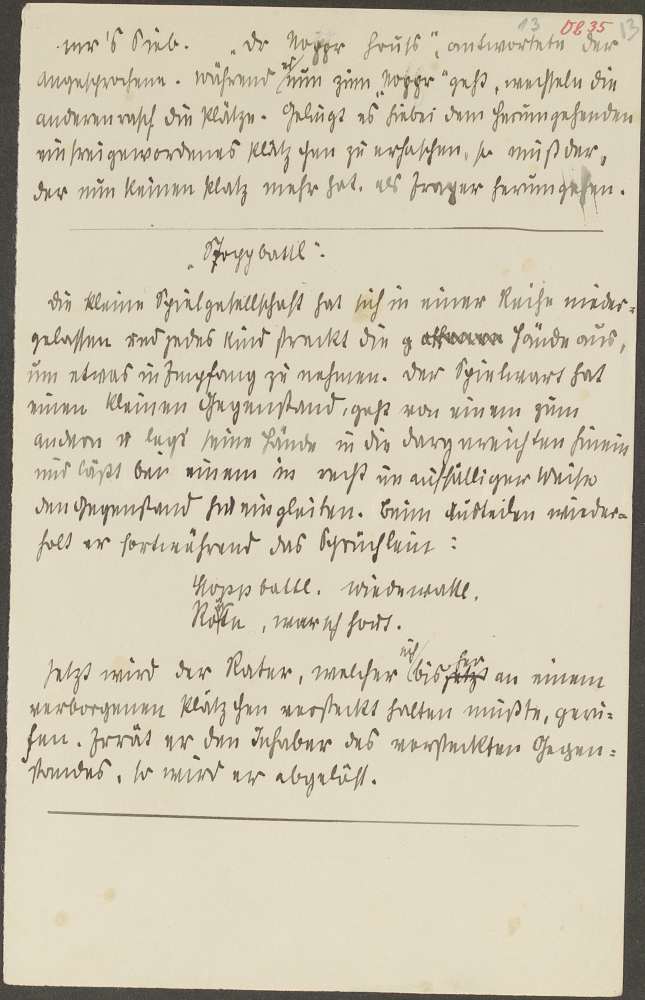 13 DB 35 13
mr's Sieb. „Dr Nopper houts", antwortete der
Angesprochene. Während er nun zum „Nopper" geht, wechseln die
anderen rasch die Plätze. Gelingt es hiebei dem Herumgehenden
ein freigewordenes Plätzchen zu erhaschen, so muß der,
der nun keinen Platz mehr hat, als Frager herumgehen.
„Stoppballl".
Die kleine Spielgesellschaft hat sich in einer Reihe nieder=
gelassen und jedes Kind streckt die Hände aus,
um etwas in Empfang zu nehmen. Der Spielwart hat
einen kleinen Gegenstand, geht von einem zum
andern u legt seine Hände in die dargereichten hinein
und läßt bei einem in recht unauffälliger Weise
den Gegenstand hineingleiten. Beim Austeilen wieder=
holt er fortwährend das Sprüchlein:
wiedewalll,
, war ich hout.
Jetzt wird der Rater, welcher sich bisher an einem
verborgenen Plätzchen versteckt halten mußte, geru=
fen. Errät er den Inhaber des versteckten Gegen=
standes, so wird er abgelöst.